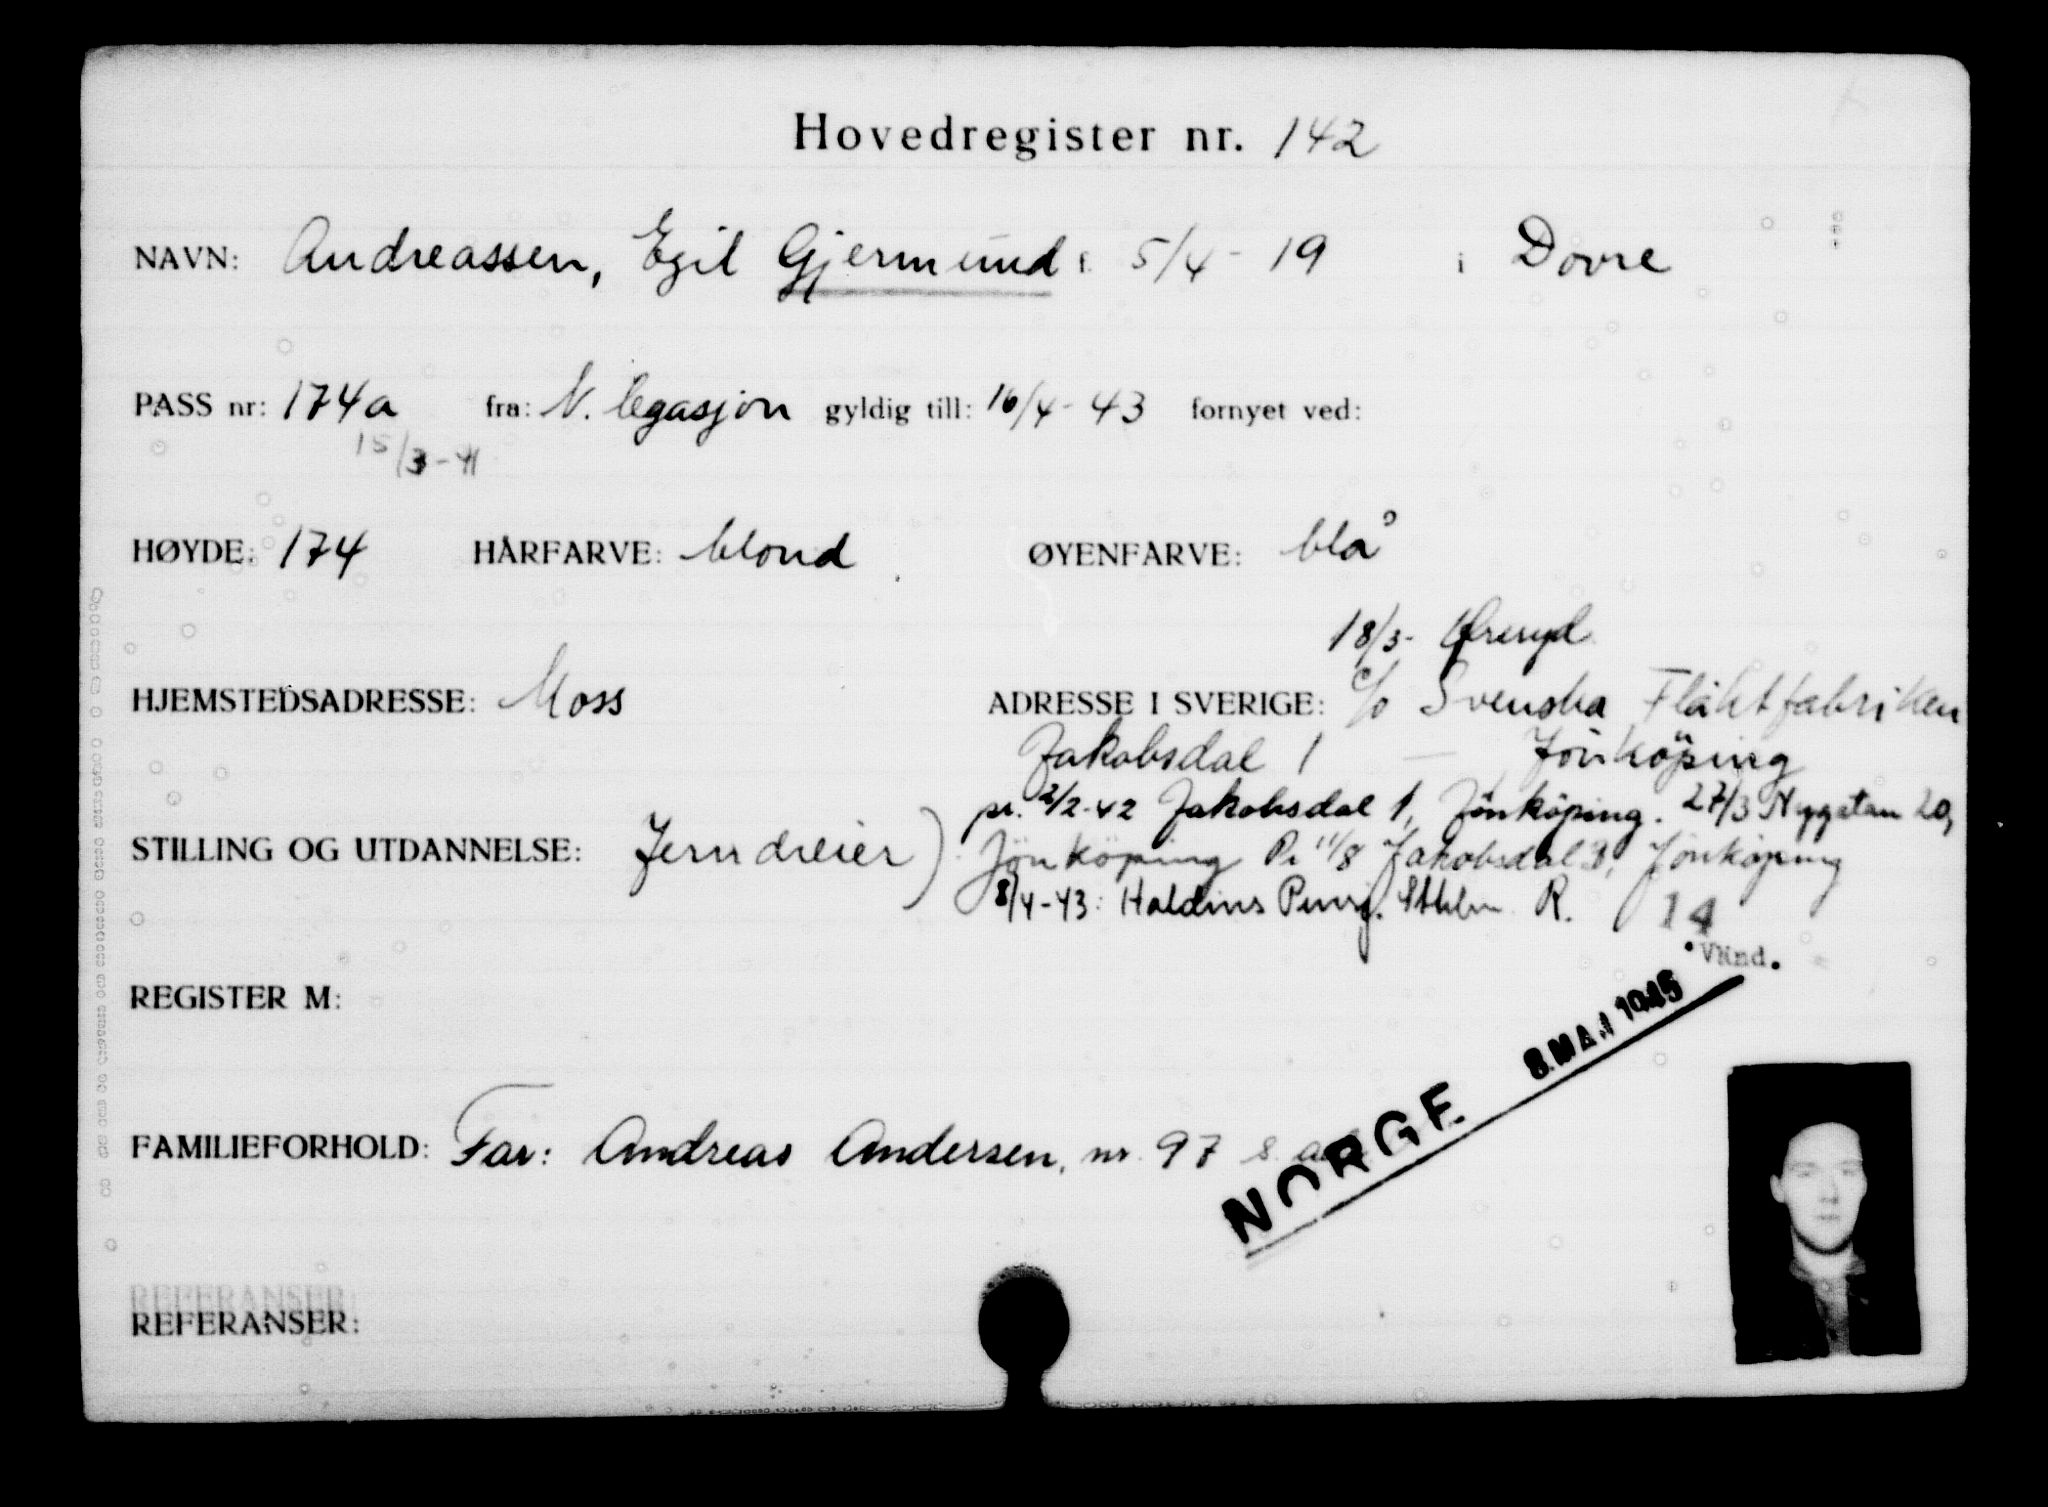 Hovedregister nr. 142
NAVN: Andreassen, Egil Gjermund f. 5/4 - 19 i Dovre
PASS nr: 174a fra: N. legasjon gyldig till: 16/4 - 43 fornyet ved:
15/3 - 41
HØYDE: 174 HÅRFARVE: blond ØYENFARVE: blå
18/3 - Øreryd
HJEMSTEDSADRESSE: Moss ADRESSE I SVERIGE: c/o Svenska Fläktfabriken
Jakobsdal 1 — Jönköping
pr. 2/2-42 Jakobsdal 1, Jönköping. 27/3 Nygatan 20,
STILLING OG UTDANNELSE: Jerndreier) Jönköping Pr 11/8 Jakobsdal 3, Jönköping
8/4-43: Haldins Sthlm R. 14
REGISTER M:
NORGE 8. MAJ 1945
FAMILIEFORHOLD: Far: Andreas Andersen, nr. 97
REFERANSER
REFERANSER: